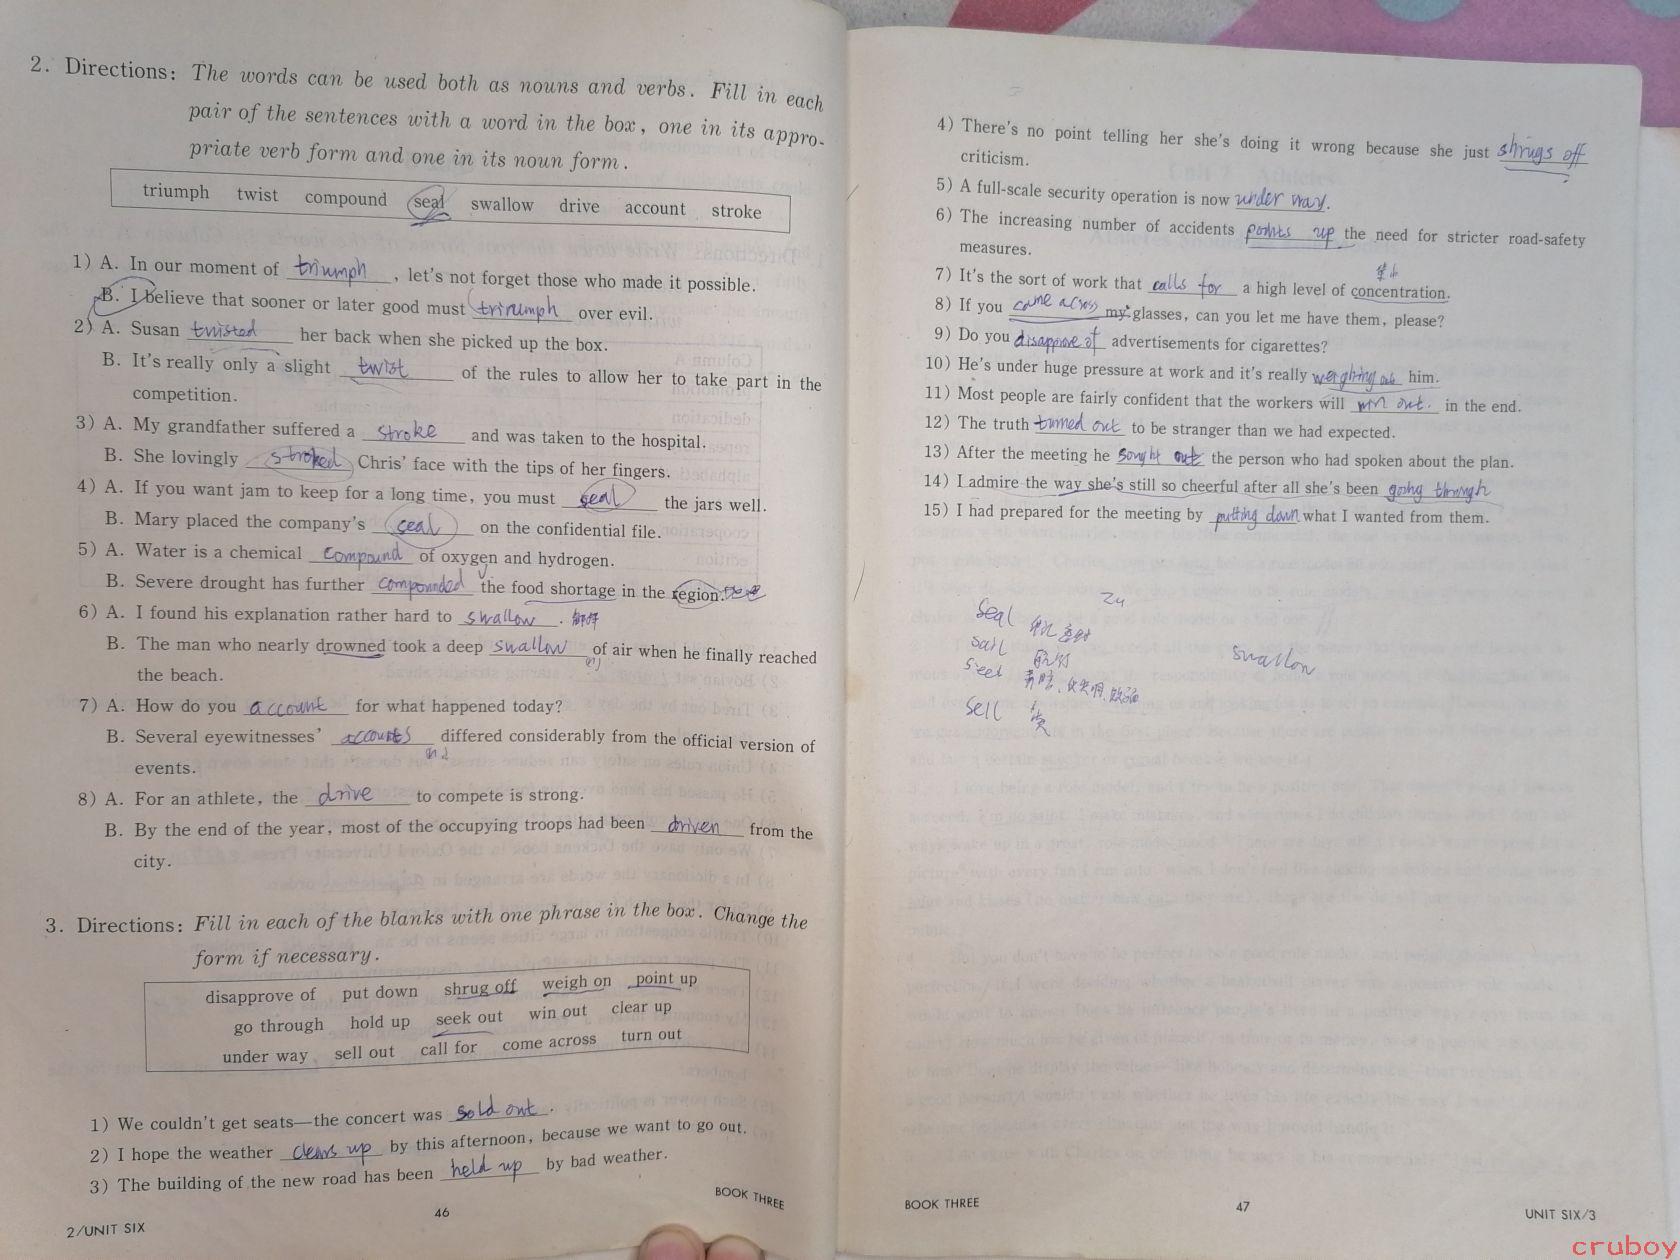 2. Directions: The words can be used both as nouns and verbs. Fill in each
pair of the sentences with a word in the box, one in its appro-
priate verb form and one in its noun form.
triumph twist compound seal swallow drive account stroke
1) A. In our moment of triumph, let's not forget those who made it possible.
B. I believe that sooner or later good must triumph over evil.
2) A. Susan twisted her back when she picked up the box.
B. It's really only a slight twist of the rules to allow her to take part in the
competition.
3) A. My grandfather suffered a stroke and was taken to the hospital.
B. She lovingly stroked Chris' face with the tips of her fingers.
4) A. If you want jam to keep for a long time, you must seal the jars well.
B. Mary placed the company's seal on the confidential file.
5) A. Water is a chemical compound of oxygen and hydrogen.
B. Severe drought has further compounded the food shortage in the region.
6) A. I found his explanation rather hard to swallow.
B. The man who nearly drowned took a deep swallow of air when he finally reached
(n)
the beach.
7) A. How do you account for what happened today?
B. Several eyewitnesses' accounts differed considerably from the official version of
events.
8) A. For an athlete, the drive to compete is strong.
B. By the end of the year, most of the occupying troops had been driven from the
city.
3. Directions: Fill in each of the blanks with one phrase in the box. Change the
form if necessary.
disapprove of put down shrug off weigh on point up
go through hold up seek out win out clear up
under way sell out call for come across turn out
1) We couldn't get seats—the concert was sold out.
2) I hope the weather clears up by this afternoon, because we want to go out.
3) The building of the new road has been held up by bad weather.
2/UNIT SIX 46 BOOK THREE
4) There's no point telling her she's doing it wrong because she just shrugs off
criticism.
5) A full-scale security operation is now under way.
6) The increasing number of accidents points up the need for stricter road-safety
measures.
7) It's the sort of work that calls for a high level of concentration.
8) If you come across my glasses, can you let me have them, please?
9) Do you disapprove of advertisements for cigarettes?
10) He's under huge pressure at work and it's really weighing on him.
11) Most people are fairly confident that the workers will win out. in the end.
12) The truth turned out to be stranger than we had expected.
13) After the meeting he sought out the person who had spoken about the plan.
14) I admire the way she's still so cheerful after all she's been going through
15) I had prepared for the meeting by putting down what I wanted from them.
seal
sail
seed
sell 卖
swallow
BOOK THREE 47 UNIT SIX/3
cruboy